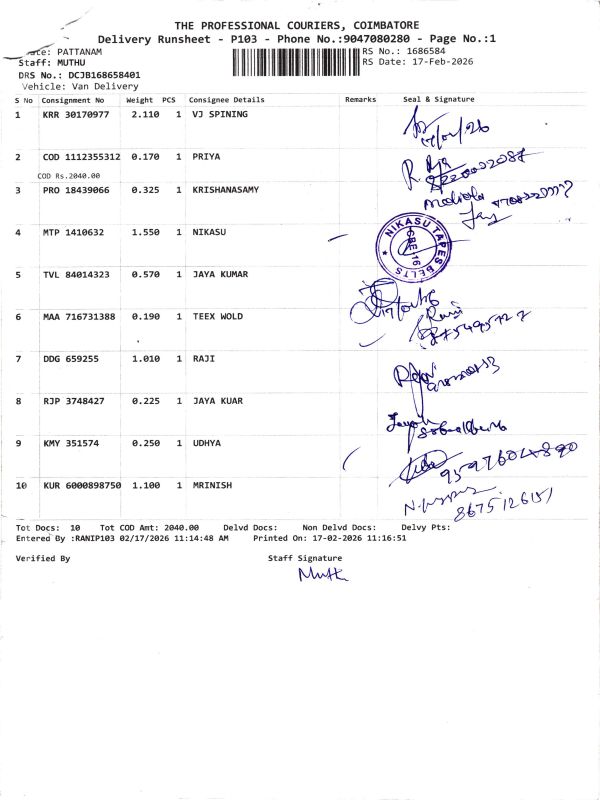 THE PROFESSIONAL COURIERS, COIMBATORE
Delivery Runsheet - P103 - Phone No.:9047080280 - Page No.:1
PATTANAM RS No.: 1686584
Staff: MUTHU RS Date: 17-Feb-2026
DRS No.: DCJB168658401
Vehicle: Van Delivery
S No Consignment No Weight PCS Consignee Details Remarks Seal & Signature
1 KRR 30170977 2.110 1 VJ SPINING
2 COD 1112355312 0.170 1 PRIYA
COD Rs.2040.00
3 PRO 18439066 0.325 1 KRISHANASAMY
4 MTP 1410632 1.550 1 NIKASU
NIKASU TAPES BELTS
CBE-16
5 TVL 84014323 0.570 1 JAYA KUMAR
6 MAA 716731388 0.190 1 TEEX WOLD
7 DDG 659255 1.010 1 RAJI
8 RJP 3748427 0.225 1 JAYA KUAR
9 KMY 351574 0.250 1 UDHYA
10 KUR 6000898750 1.100 1 MRINISH
Tot Docs: 10 Tot COD Amt: 2040.00 Delvd Docs: Non Delvd Docs: Delvy Pts:
Entered By :RANIP103 02/17/2026 11:14:48 AM Printed On: 17-02-2026 11:16:51
Verified By Staff Signature